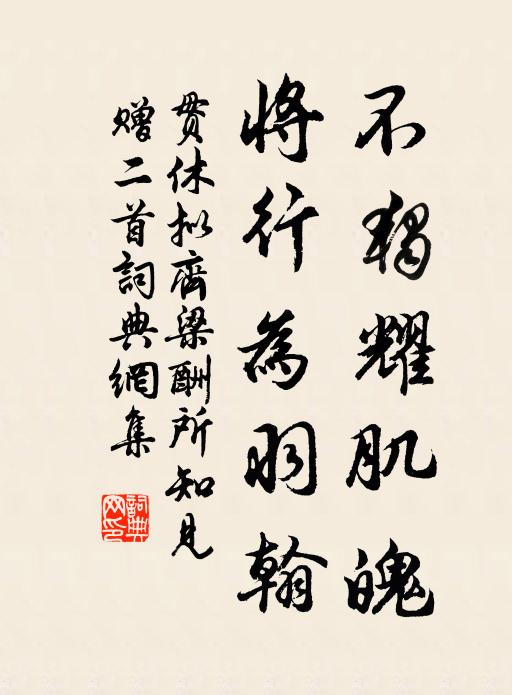 不獨耀肌魄
將行為羽翰
貫休擬齊梁酬所知見
贈二首詞典網集
詞典網印